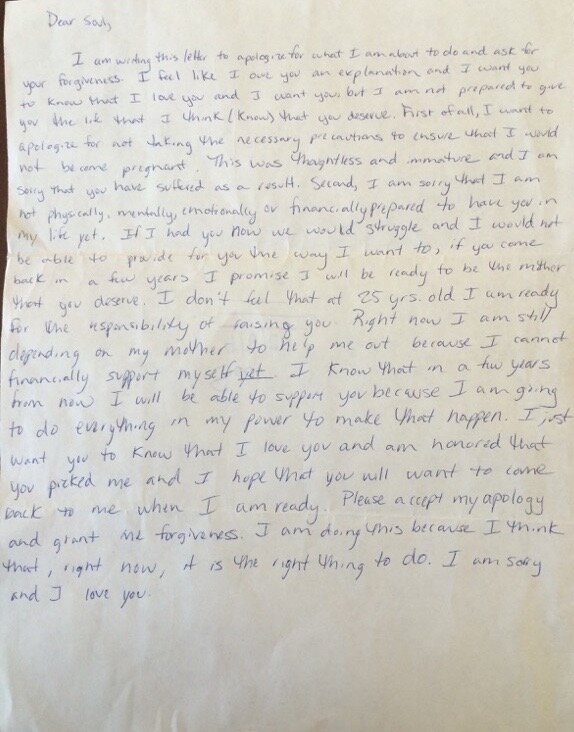 Dear Soul,
I am writing this letter to apologize for what I am about to do and ask for
your forgiveness. I feel like I owe you an explanation and I want you
to know that I love you and I want you, but I am not prepared to give
you the life that I think (know) that you deserve. First of all, I want to
apologize for not taking the necessary precautions to ensure that I would
not become pregnant. This was thoughtless and immature and I am
sorry that you have suffered as a result. Second, I am sorry that I am
not physically, mentally, emotionally or financially prepared to have you in
my life yet. If I had you now we would struggle and I would not
be able to provide for you the way I want to, if you come
back in a few years I promise I will be ready to be the mother
that you deserve. I don't feel that at 25 yrs. old I am ready
for the responsibility of raising you. Right now I am still
depending on my mother to help me out because I cannot
financially support myself yet. I know that in a few years
from now I will be able to support you because I am going
to do everything in my power to make that happen. I just
want you to know that I love you and am honored that
you picked me and I hope that you will want to come
back to me when I am ready. Please accept my apology
and grant me forgiveness. I am doing this because I think
that, right now, it is the right thing to do. I am sorry
and I love you.